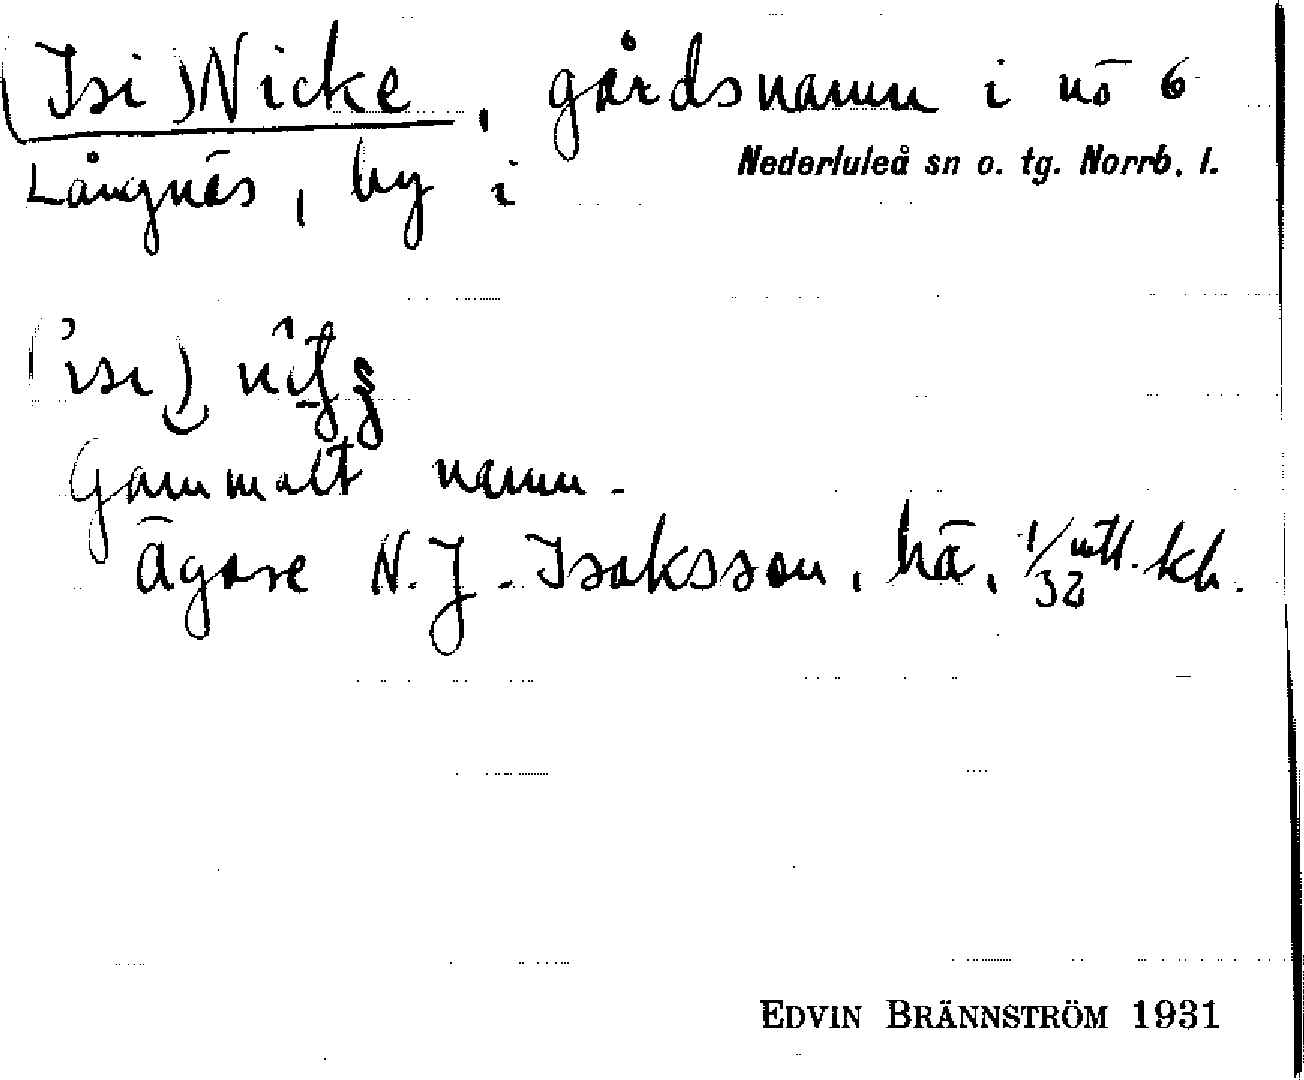 (Isi)Nicke, gårdsnamn i nö 6
Långnäs, by i Nederluleå sn o. tg. Norrb. l.
Gammalt namn.
Ägare N.J. Isaksson, hä, 1/32 mtl. kh.
EDVIN BRÄNNSTRÖM 1931